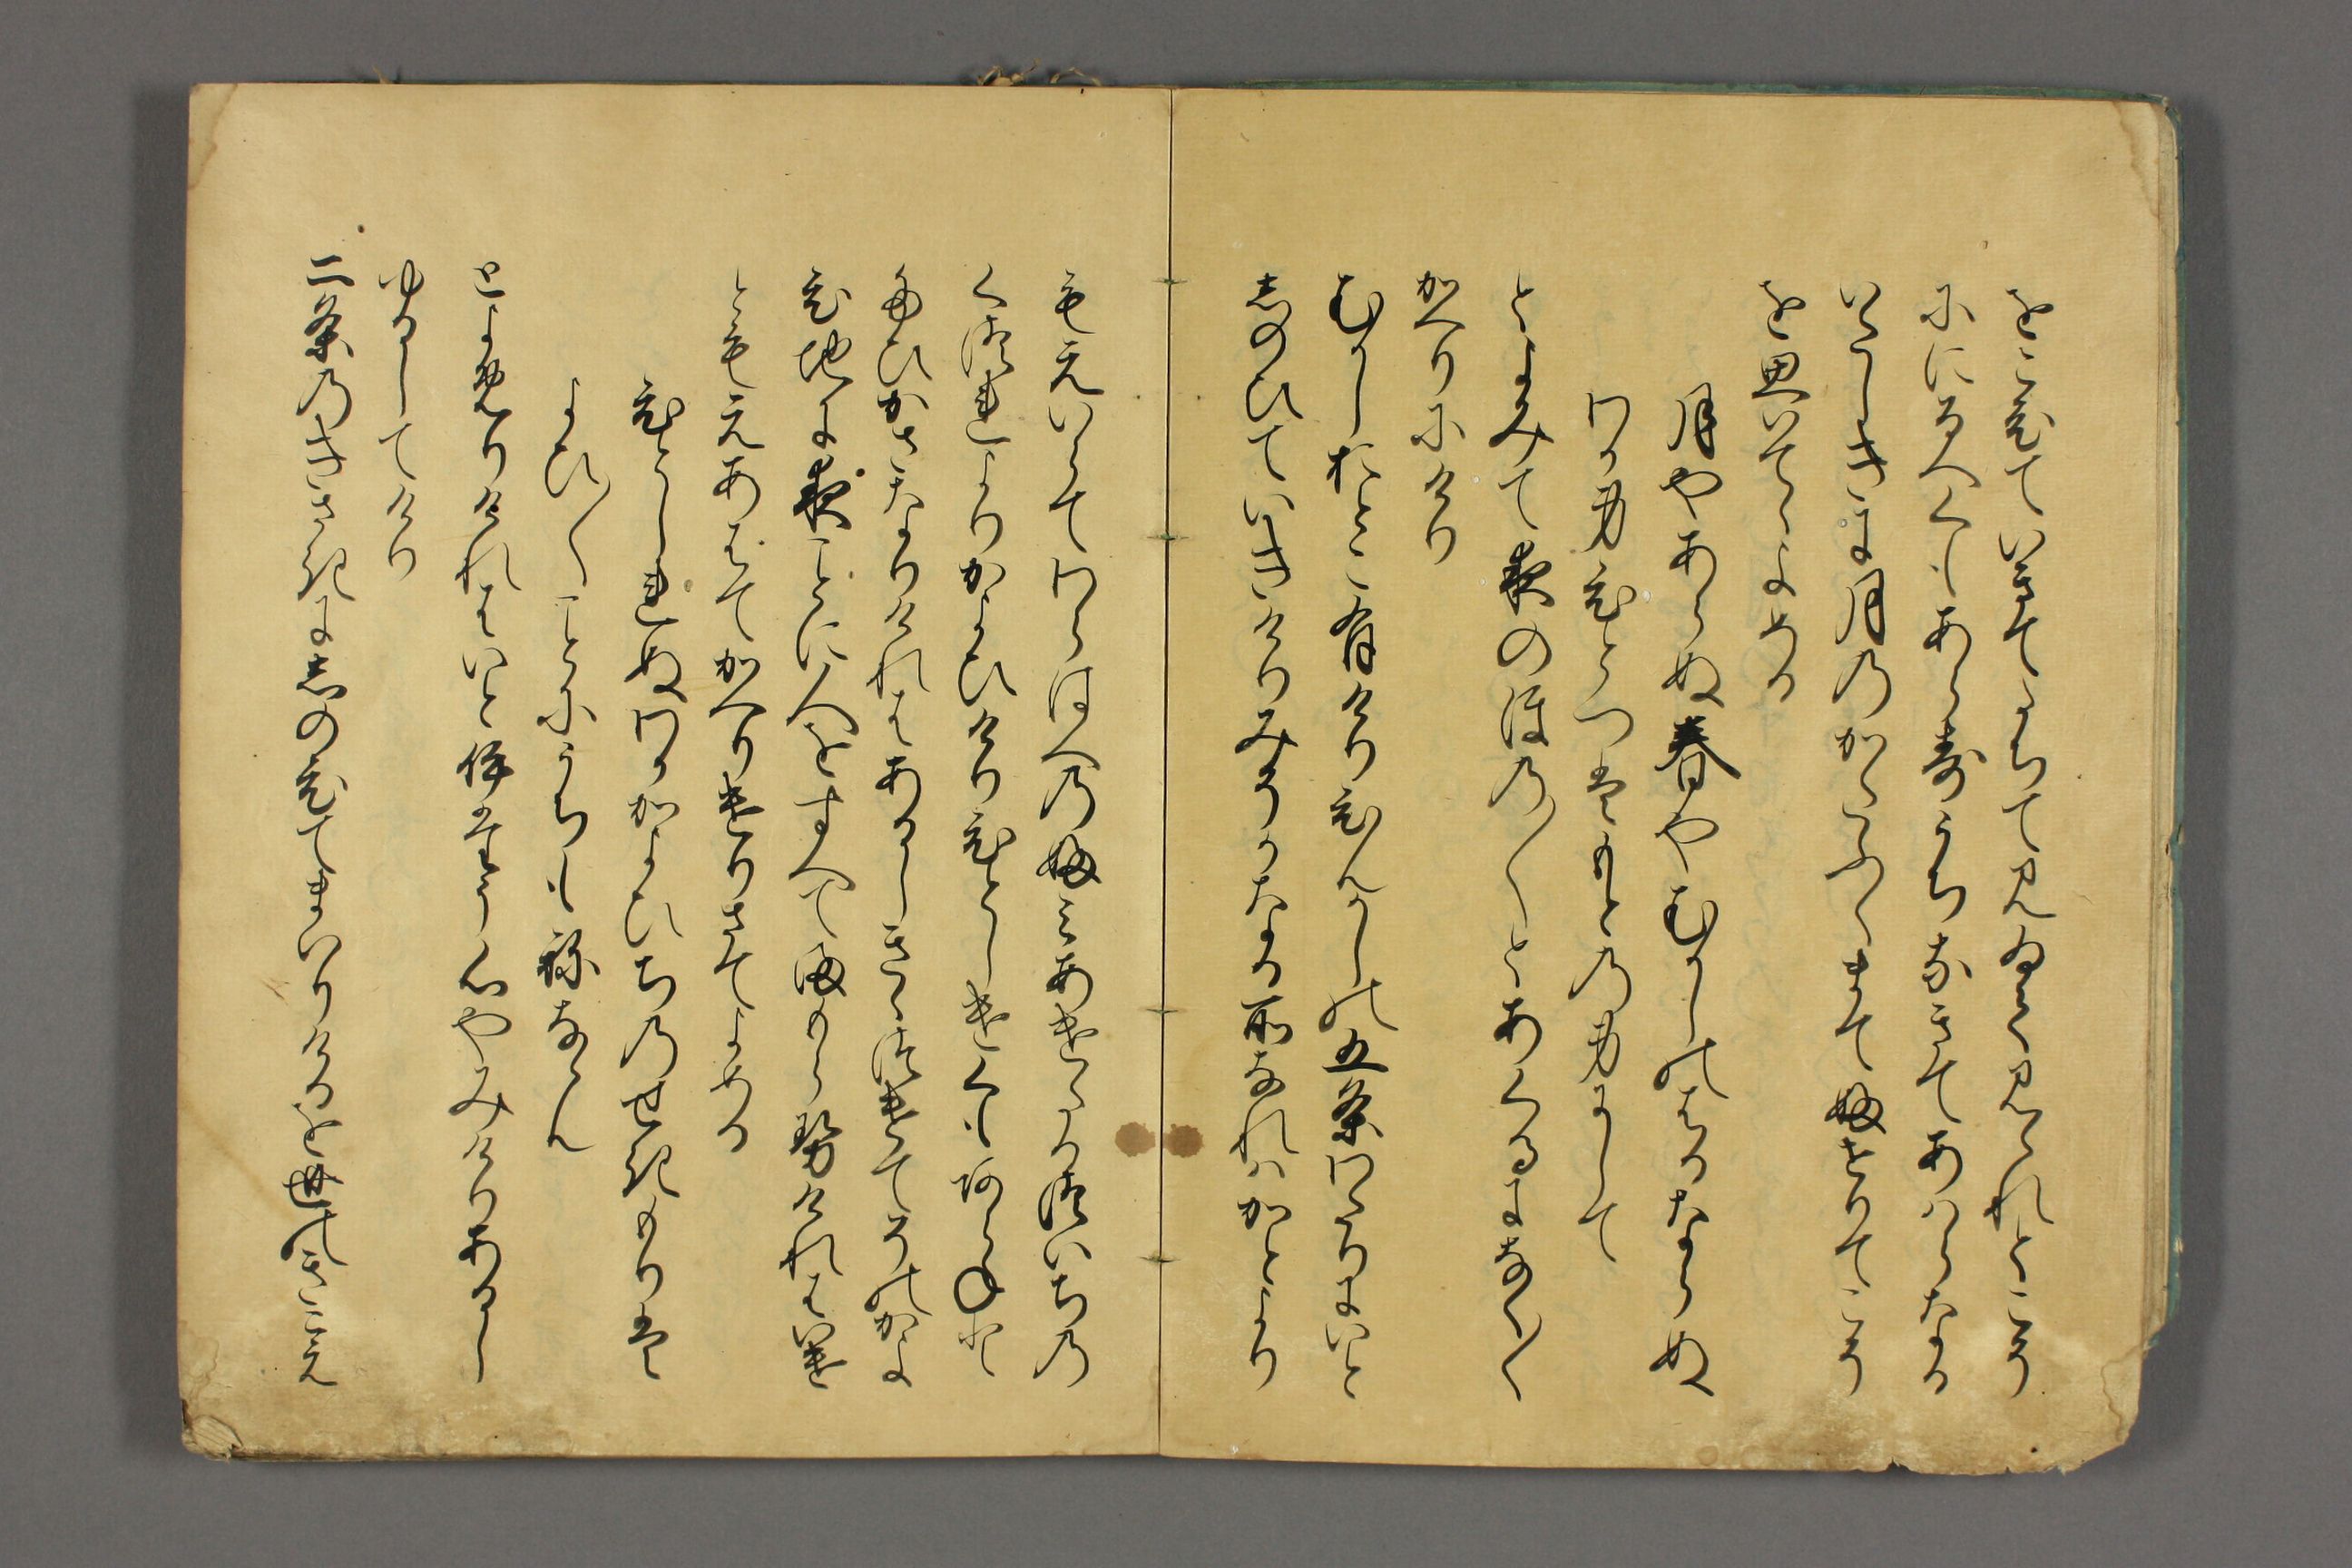 をこひていきてたちて見ゐて見れとこそ
ににるへくもあらすうちなきてあはらなる
いたしきに月のかたふくまてふせりてこそ
を思いてゝよめる
月やあらぬ春やむかしのはるならぬ
わか身ひとつはもとの身にして
とよみて夜のほの〱とあくるになく〱
かへりにけり
むかしおとこ有けりひんかしの五条わたりにいと
しのひていきけりみそかなる所なれはかとより
もえいらてわらはへのふみあけたるついちの
くつれよりかよひけりひとしけくもあらねと
たひかさなりけれはあるしきゝつけてそのかよ
ひ地に夜ことに人をすへてまもらせけれはいけ
ともえあはてかへりけりさてよめる
ひとしれぬわかかよひちのせきもりは
よひ〱ことにうちもねなゝん
とよめりけれはいといたう心やみけりあるし
ゆるしてけり
二条のきさきにしのひてまいりけるを世のきこえ